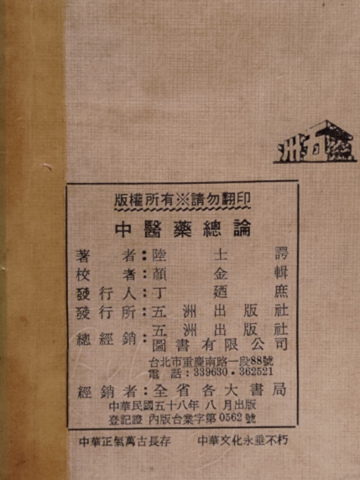 五洲
版權所有※請勿翻印
中醫藥總論
著者：陸士諤
校者：顏金輯
發行人：丁迺庶
發行所：五洲出版社
總經銷：五洲出版社
圖書有限公司
台北市重慶南路一段88號
電話：339630・362521
經銷者：全省各大書局
中華民國五十八年八月出版
登記證 內版台業字第0562號
中華正氣萬古長存 中華文化永垂不朽